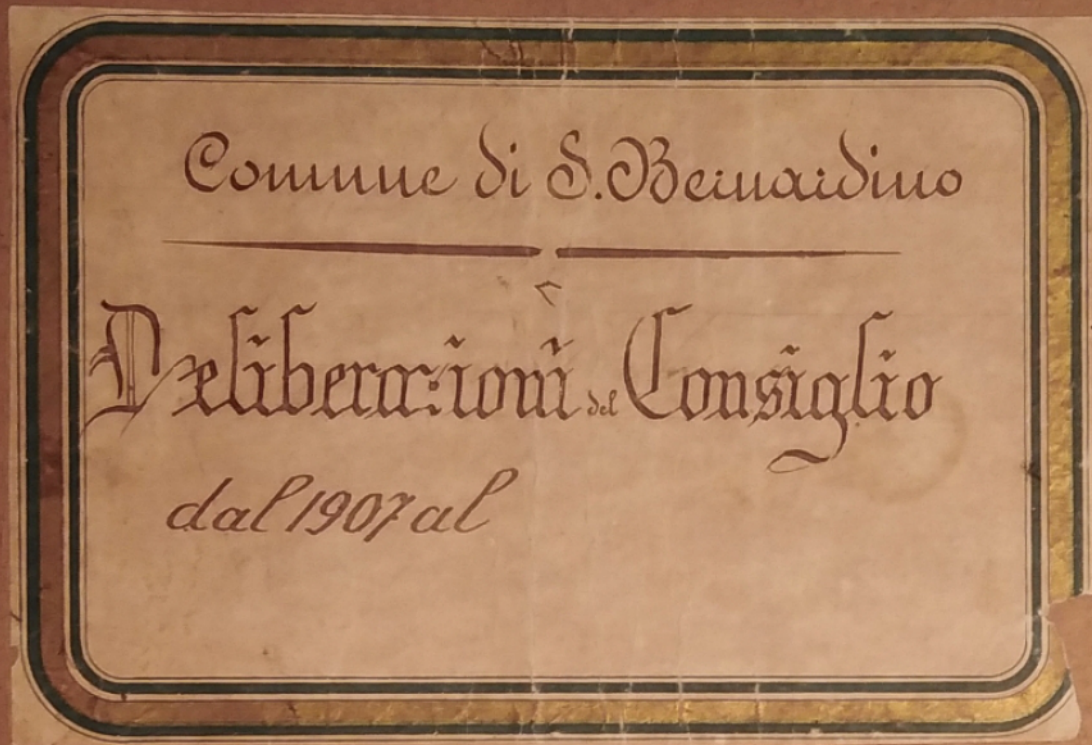 Comune di S. Bernardino
Deliberazioni del Consiglio
dal 1907 al